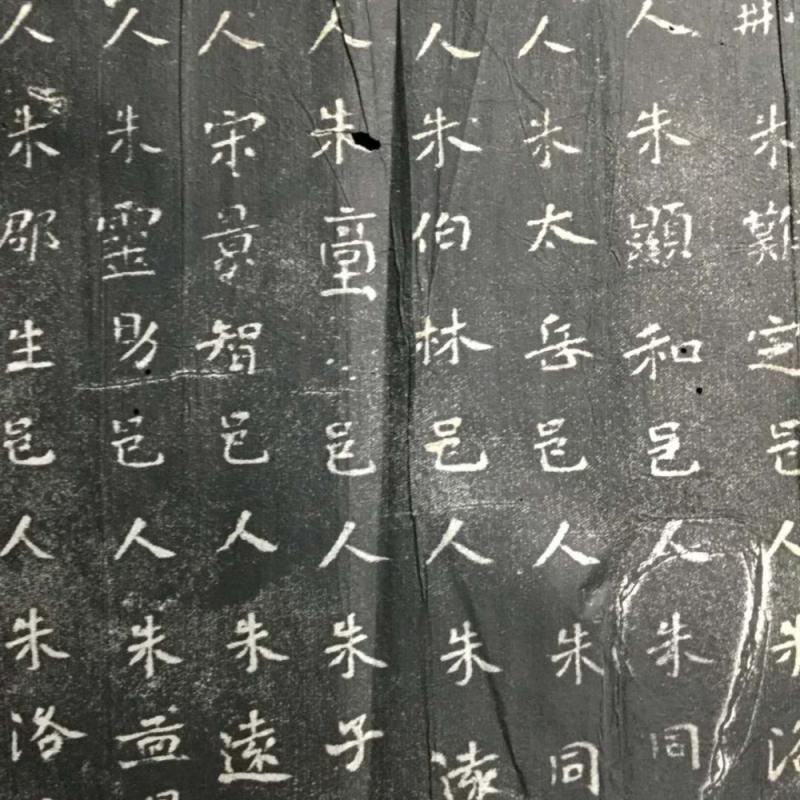 朱難定邑人朱洛
人朱顯和邑人朱同
人朱太岳邑人朱同
人朱伯林邑人朱遠
人朱童邑人朱子
人宋景智邑人朱遠
人朱靈助邑人朱益
人朱郡生邑人朱洛